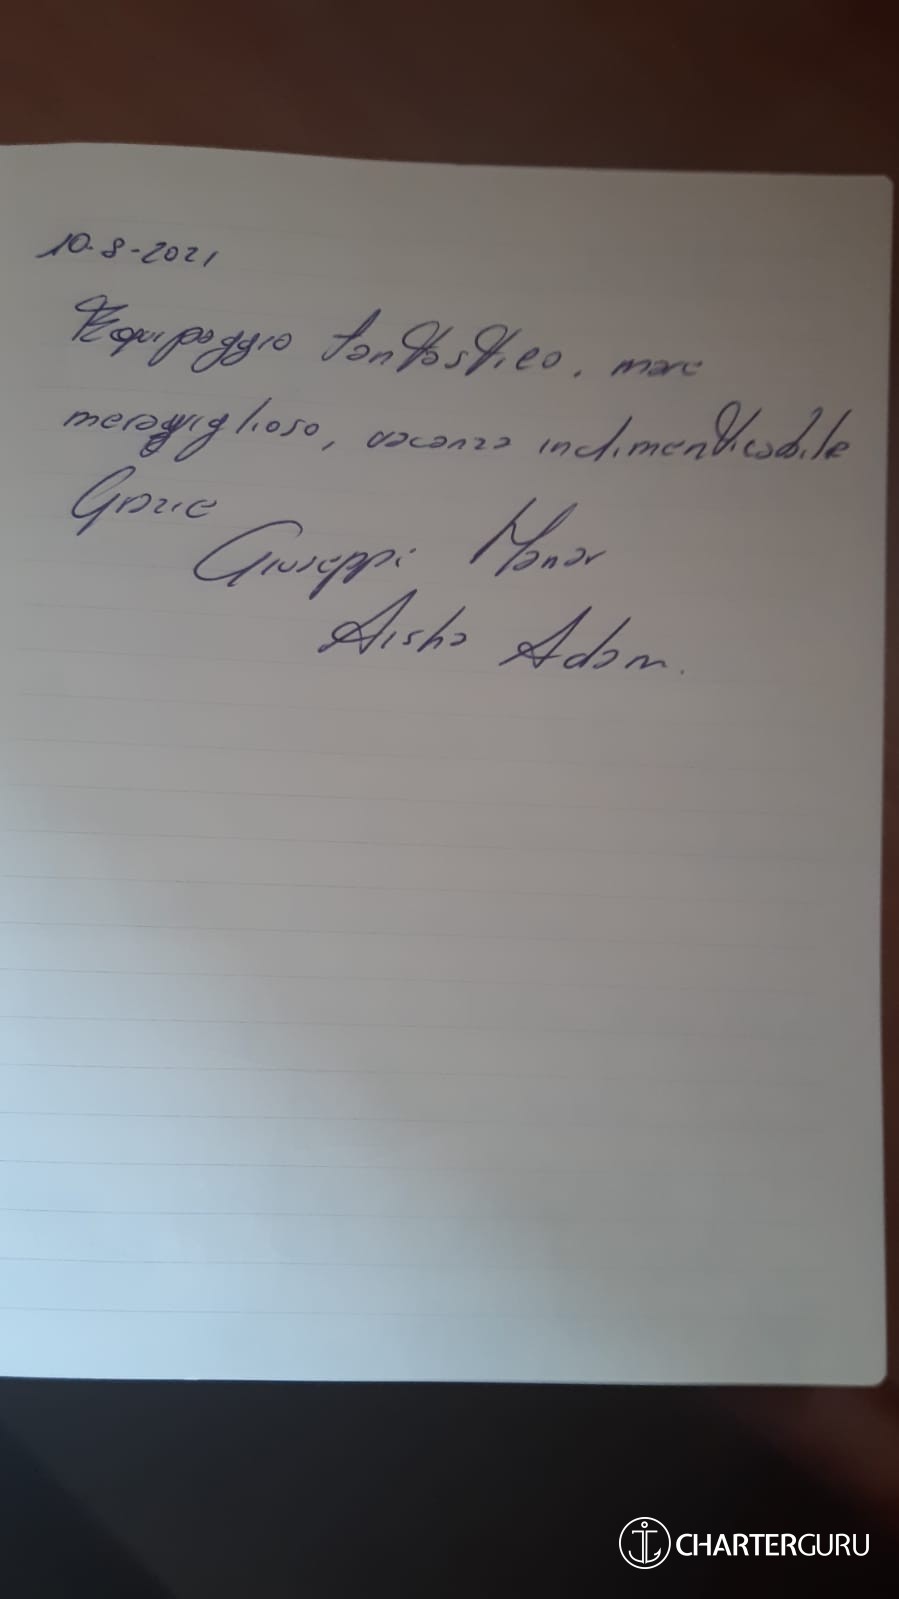 10-8-2021
Equipaggio fantastico, mare
meraviglioso, vacanza indimenticabile
Grazie
Giuseppi Manar
Aisha Adam.
CHARTERGURU